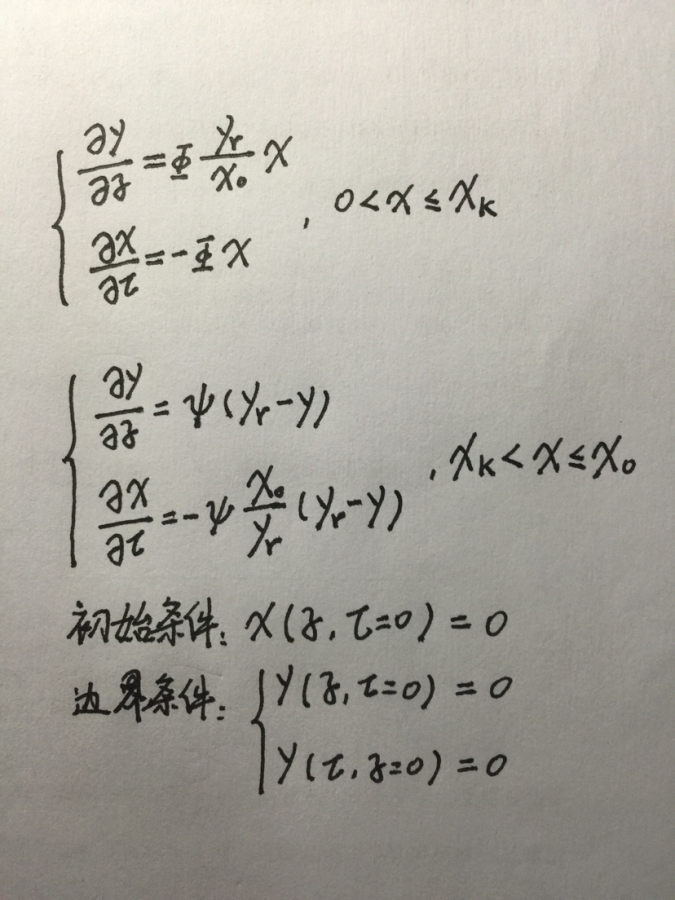 ∂y/∂z = Φ (y_r/x_0) x
∂x/∂τ = -Φ x , 0 < x ≤ x_K
∂y/∂z = ψ (y_r - y)
∂x/∂τ = -ψ (x_0/y_r) (y_r - y) , x_K < x ≤ x_0
初始条件: x(z, τ=0) = 0
边界条件: y(z, τ=0) = 0
y(τ, z=0) = 0